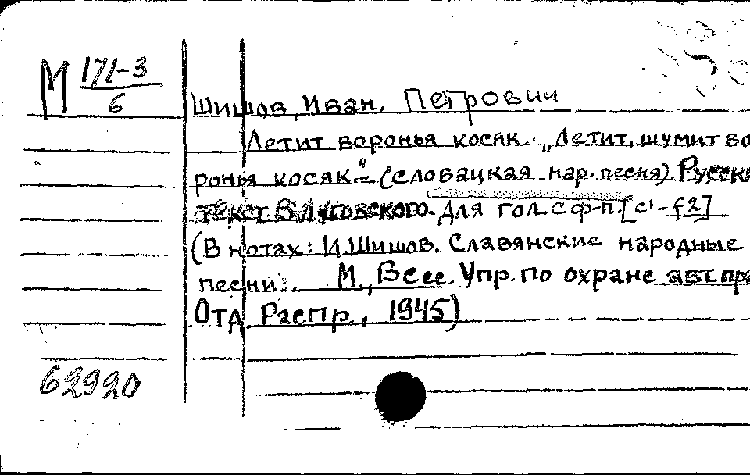 М 171-3
6
Шишов, Иван, Петрович
Летит воронья косяк. „Летит, шумит во
ронья косяк" – (словацкая нар. песня) Русск
текст В. Луговского. Для гол. с ф-п [c¹-f2]
(В нотах: И. Шишов. Славянские народные
песни). М., Всес. Упр. по охране авт. пра
Отд Распр., 1945)
62920